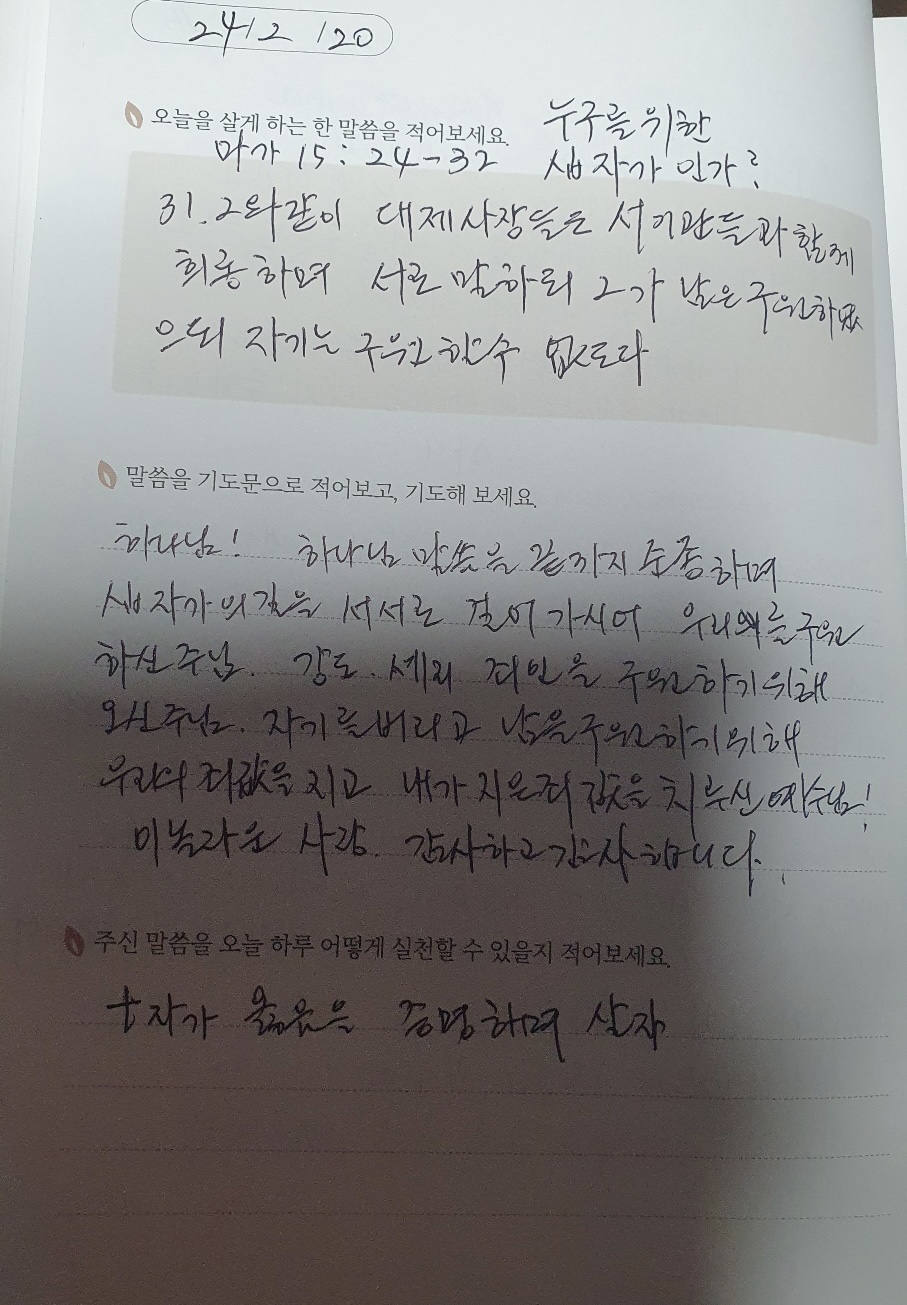 24/2 /20
오늘을 살게 하는 한 말씀을 적어보세요.
누구를 위한
마가 15 : 24-32
십자가 인가?
31. 그와같이 대제사장들은 서기관들과 함께
희롱하며 서로 말하되 그가 남은 구원하였
으되 자기는 구원할수 없도다
말씀을 기도문으로 적어보고, 기도해 보세요.
하나님! 하나님 말씀을 끝까지 순종하며
십자가의길을 서서로 걸어가시어 우리를구원
하신주님. 강도. 세리 죄인을 구원하기위해
오신주님. 자기를버리고 남을구원하기위해
우리의 죄값을 지고 내가 지은죄 값을 치루신 예수님!
이놀라운 사랑. 감사하고감사합니다.
주신 말씀을 오늘 하루 어떻게 실천할 수 있을지 적어보세요.
十자가 을 증명하며 살자